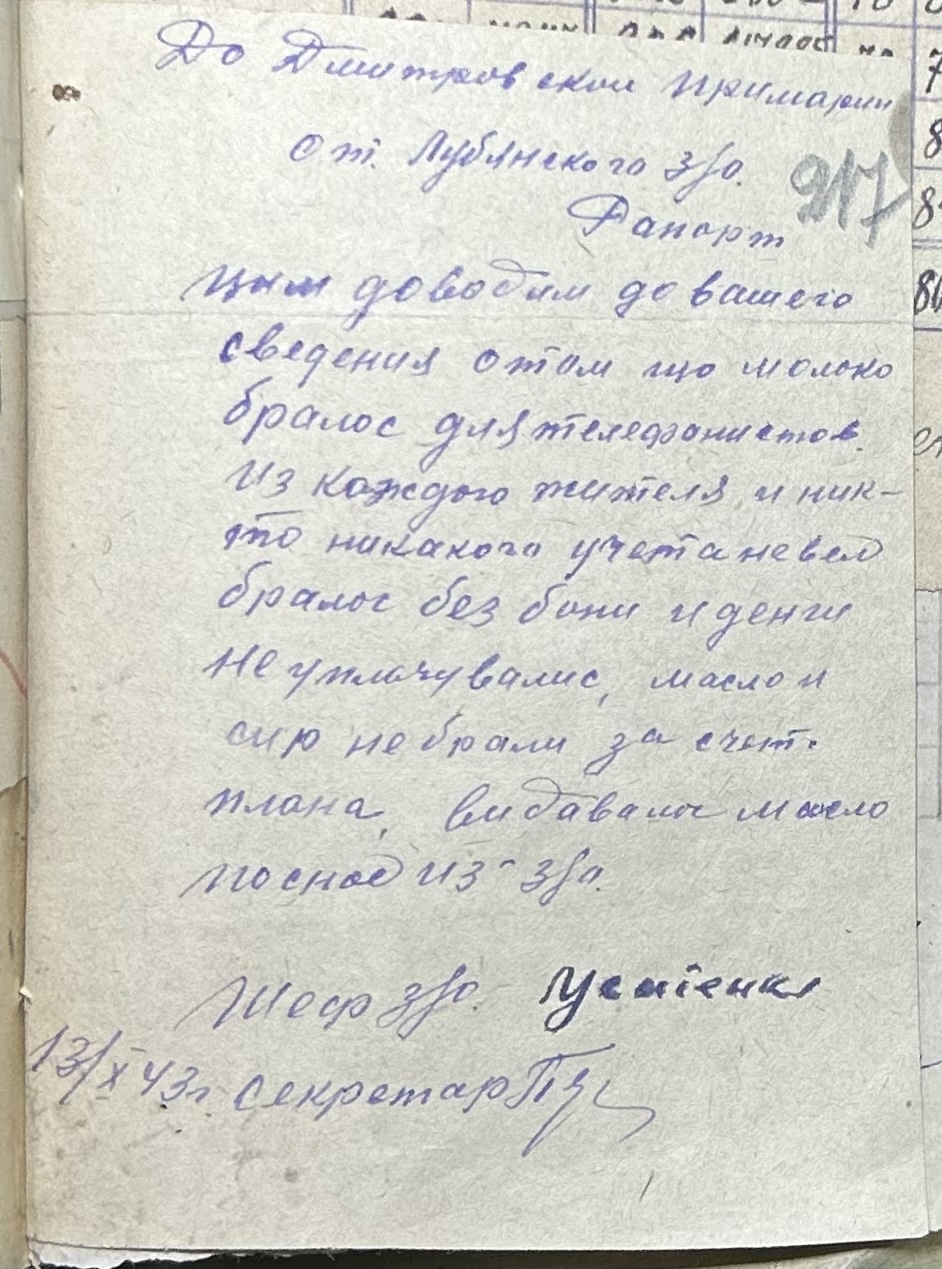 До Дмитровской примарии
от. Лубянского з/о.
217
Рапорт
цым доводим до вашего
сведения о том що молоко
бралос для телефонистов.
Из каждого жителя и ник-
то никакого учета невел
бралос без бони и денги
не уплачувалис, масло и
сир не брали за счет.
плана, видавалы масло
посное из з/о.
Шеф з/о. Устіенко
13/X 43г. секретар